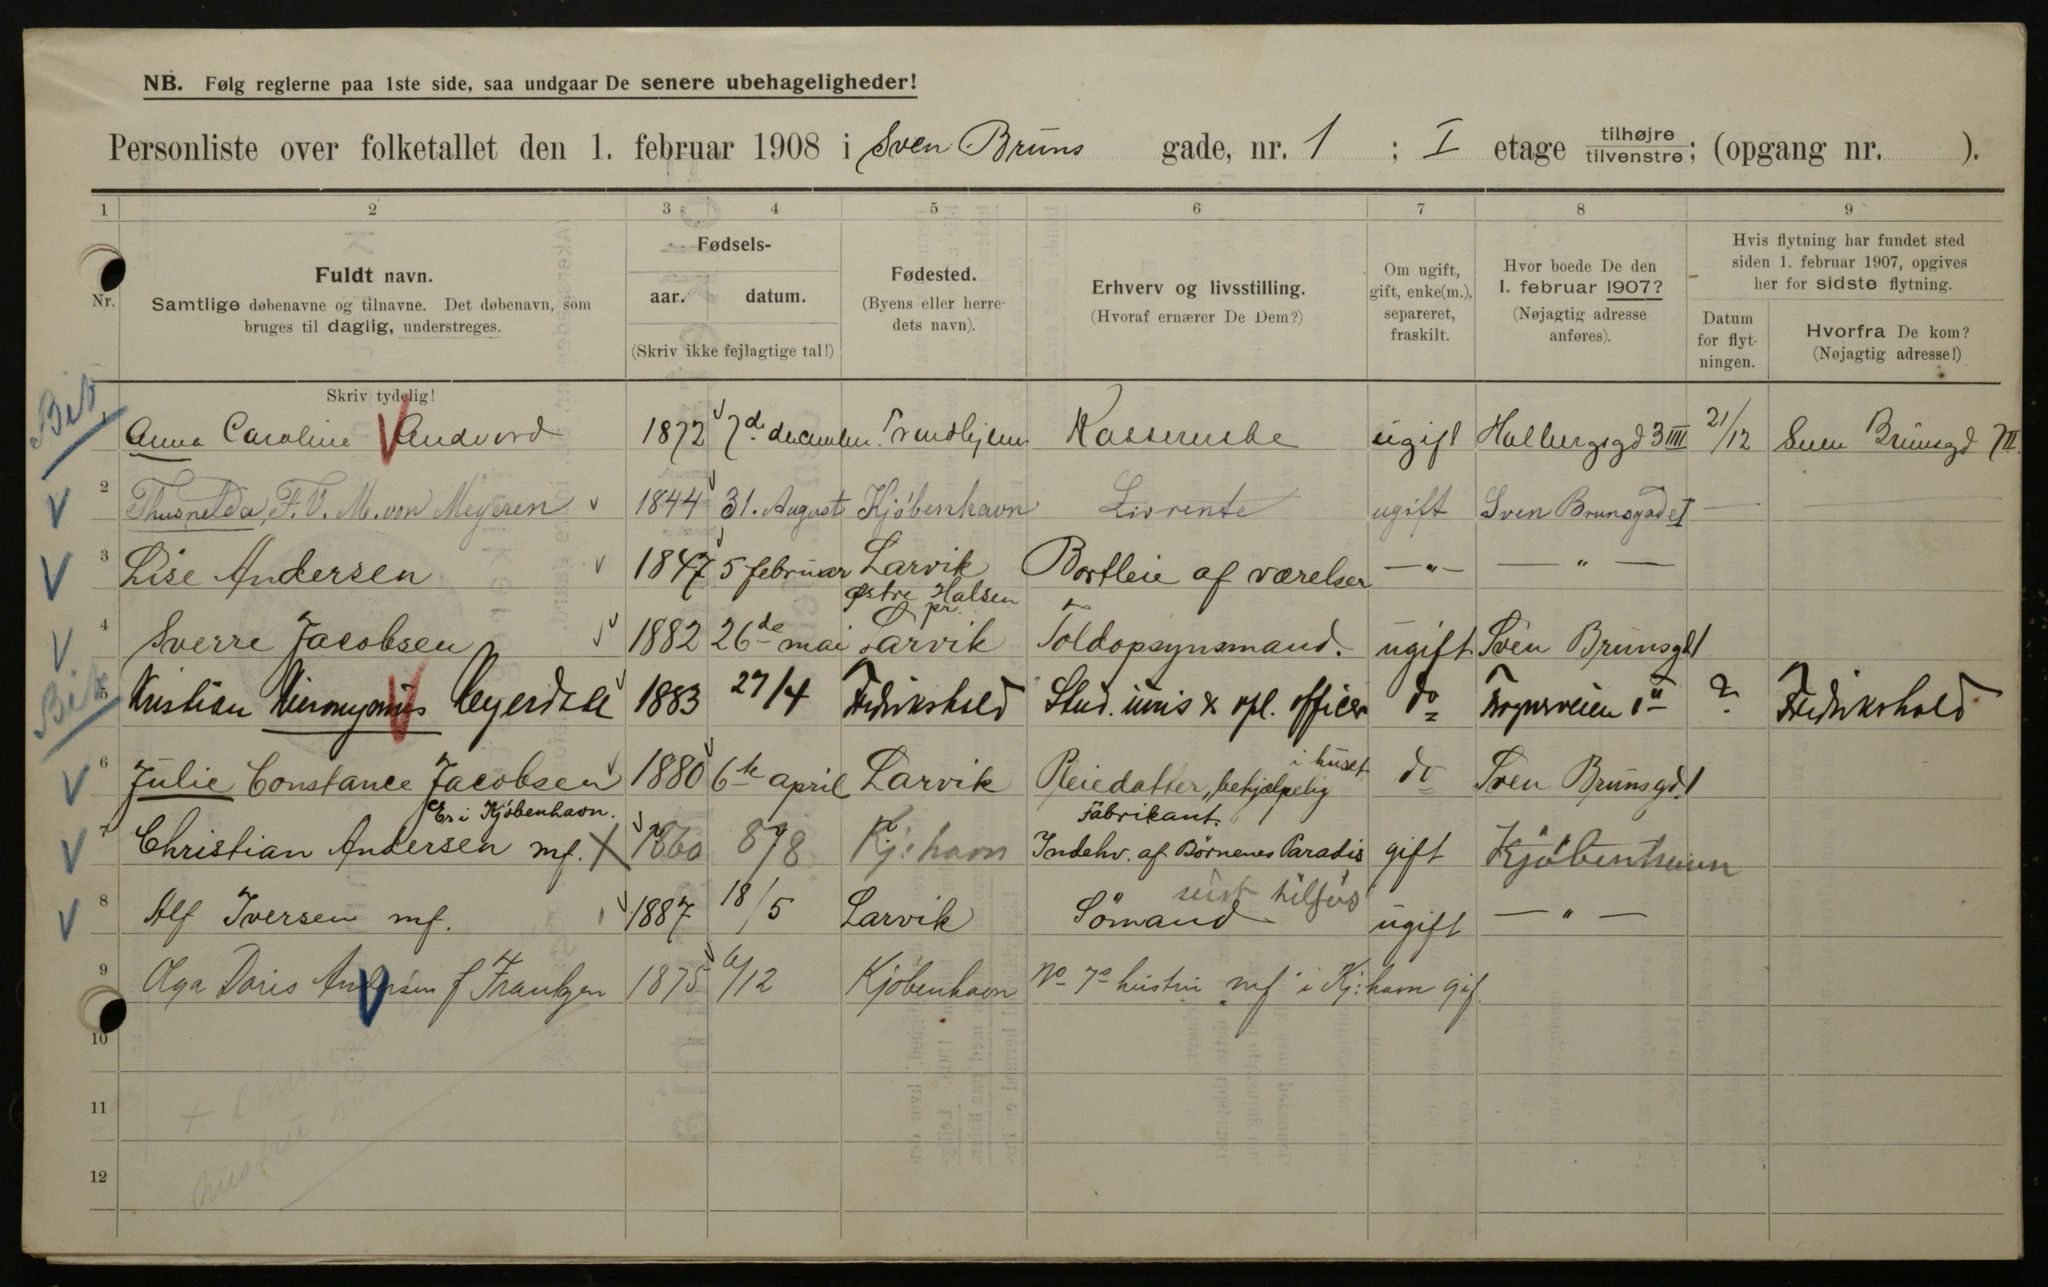 NB. Følg reglerne paa 1ste side, saa undgaar De senere ubehageligheder!
Personliste over folketallet den 1. februar 1908 i Sven Bruns gade, nr. 1 ; I etage tilhøjre tilvenstre; (opgang nr. ).
1 2 3 4 5 6 7 8 9
Nr.
Fuldt navn.
Samtlige døbenavne og tilnavne. Det døbenavn, som
bruges til daglig, understreges.
Skriv tydelig!
Fødsels-
aar. datum.
(Skriv ikke fejlagtige tal!)
Fødested.
(Byens eller herre-
dets navn).
Erhverv og livsstilling.
(Hvoraf ernærer De Dem?)
Om ugift,
gift, enke(m.),
separeret,
fraskilt.
Hvor boede De den
1. februar 1907?
(Nøjagtig adresse
anføres).
Hvis flytning har fundet sted
siden 1. februar 1907, opgives
her for sidste flytning.
Datum
for flyt-
ningen.
Hvorfra De kom?
(Nøjagtig adresse!)
1 Anna Caroline Andvord 1872 7de december Trondhjem Kasserske ugift Holbergsgd 3 IIII 21/12 Sven Brunsgd 7 II.
2 Thusnelda, F. V. M. von Meyeren 1844 31. August Kjöbenhavn Livrente ugift Sven Brunsgade I — —
3 Lise Andersen 1847 5 februar Larvik Bortleie af værelser — " — — " —
Østre Halsen
pr.
4 Sverre Jacobsen 1882 26de mai Larvik Toldopsynsmand. ugift Sven Brunsgd 1
5 Kristian Hieronymus Heyerdahl 1883 27/4 Fredrikshald Stud. & vpl. officer do ? Fredrikshald
i huset
6 Julie Constance Jacobsen 1880 6te april Larvik Pleiedatter, behjælpelig do Sven Brunsgd. 1
Er i Kjöbenhavn. Fabrikant.
7 Christian Andersen mf. X 1860 8/8 Kj:havn Indehv. af Börnenes Paradis gift Kjöbenhavn
tilsjös
8 Alf Iversen mf. 1887 18/5 Larvik Sömand ugift — " —
9 Olga Doris Andersen f 1875 6/12 Kjöbenhavn No 7s hustru mf i Kj:havn gif.
10
11
12